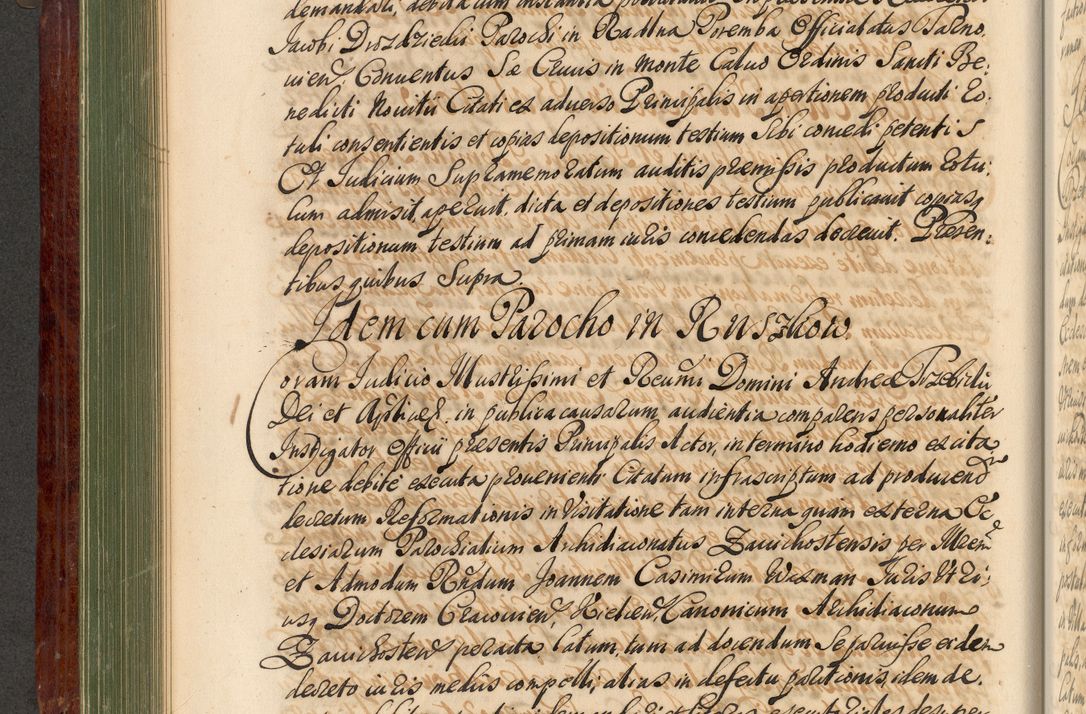 Jacobi Drozdziedii Parochi in Radkna Poremba Officialatus Tarno
uien. Conuentus Sæ Crucis in monte Caluo Ordinis Sancti Be:
nedicti Nouitii Citati ex aduerso Principalis in apertionem producti Ro:
tuli consentientis et copias depositionum testium Sibi concedi petenti s
Et Judicium Supramemoratum auditis præmissis productum Rotu:
lum admisit, aperuit, dicta et depositiones testium publicauit copiasq
depositionum testium ad primam iuris concedendas decreuit. Presen:
tibus quibus Supra.
Idem cum Parocho in Ruszkow.
Coram Judicio Illustrissimi et Reumi Domini Andreæ Trzebicki
Dei et Aplicæ. in publica causarum audientia comparens personaliter
Instigator Officii præsentis Principalis Actor, in termino hodierno ex cita
tione debite executa prouenienti Citatum infrascriptum ad producend
decretum Reformationis in Visitatione tam interna quam externa Ec
clesiarum Parochialium Archidiaconatus Zauichostensis per Mren
et Admodum Rndum Joannem Casimirum Wasman Juris Utri:
usq Doctorem Cracouien, Kielcen Canonicum Archidiaconum
Zauichosten peracta latum, tum ad docendum se paruisse eidem
decreto iuris melius compelli, alias in defectu paritionis idem de.